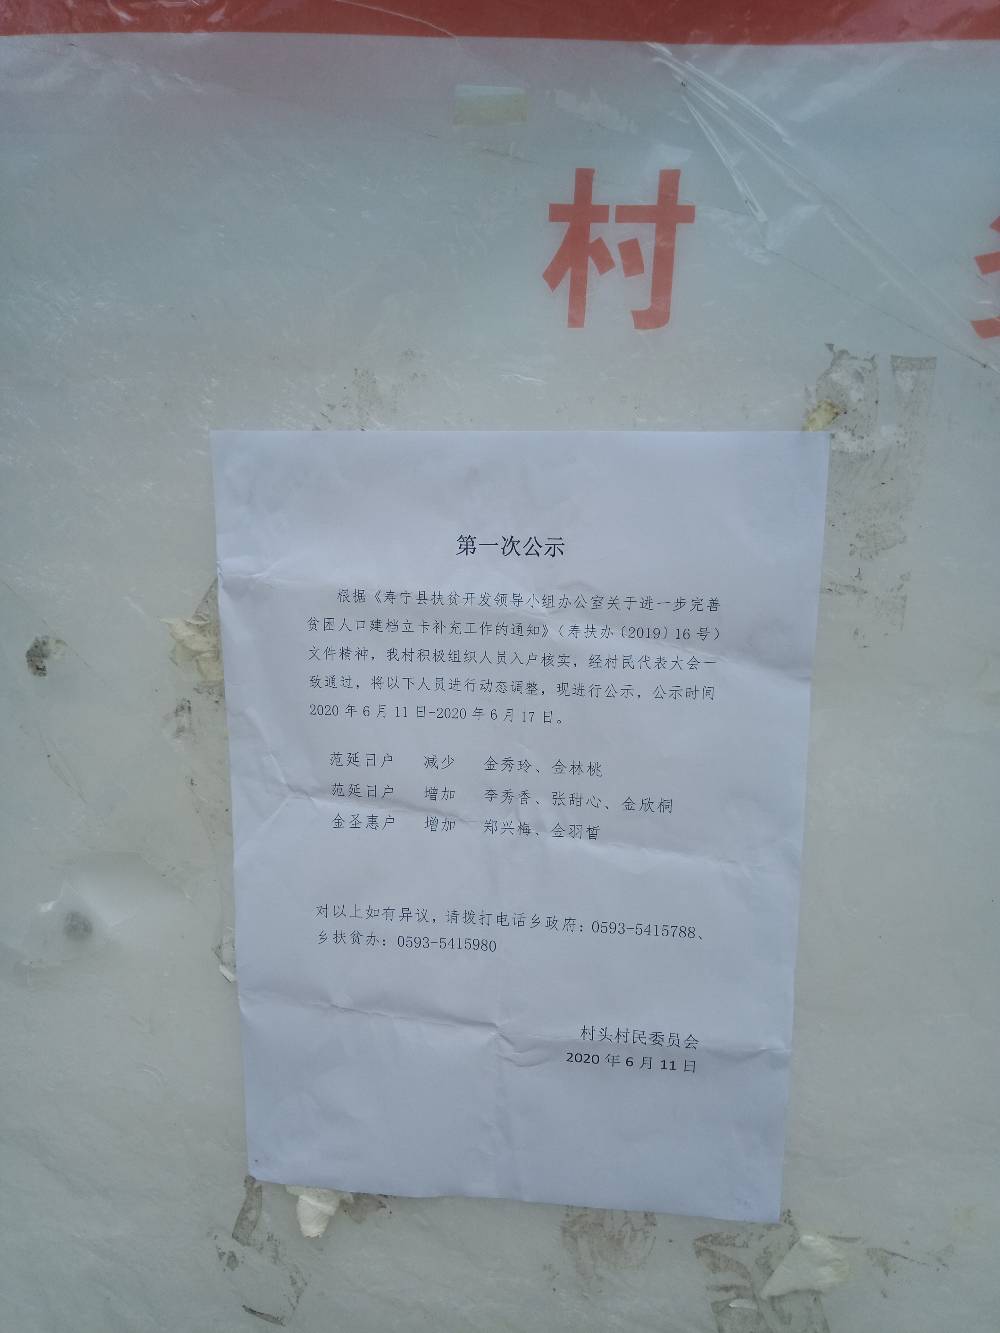 村
第一次公示
根据《寿宁县扶贫开发领导小组办公室关于进一步完善
贫困人口建档立卡补充工作的通知》（寿扶办〔2019〕16号）
文件精神，我村积极组织人员入户核实，经村民代表大会一
致通过，将以下人员进行动态调整，现进行公示，公示时间
2020年6月11日-2020年6月17日。
范延日户 减少 金秀玲、金林桃
范延日户 增加 李秀香、张甜心、金欣桐
金圣惠户 增加 郑兴梅、金羽皙
对以上如有异议，请拨打电话乡政府：0593-5415788、
乡扶贫办：0593-5415980
村头村民委员会
2020年6月11日